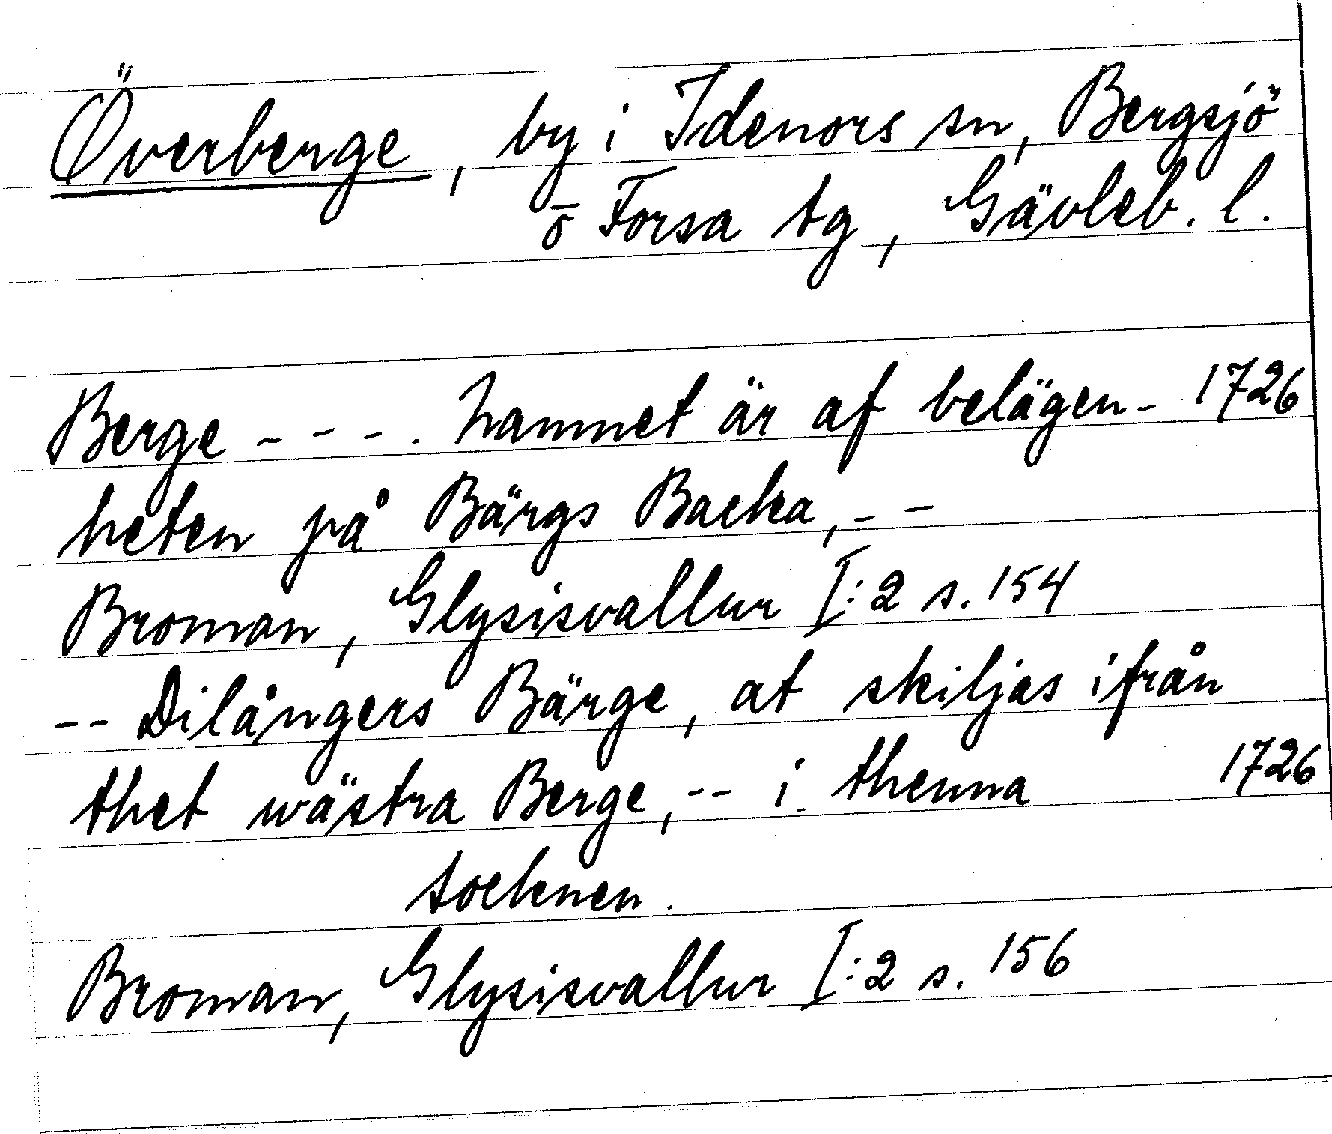 Överberge, by i Idenors sn, Bergsjö
o Forsa tg, Gävleb. l.
Berge - - - . Namnet är af belägen- 1726
heten på Bärgs Backa, - -
Broman, Glysisvallur I:2 s. 154
-- Dilångers Bärge, at skiljas ifrån
thet wästra Berge, -- i thenna 1726
socknen.
Broman, Glysisvallur I:2 s. 156